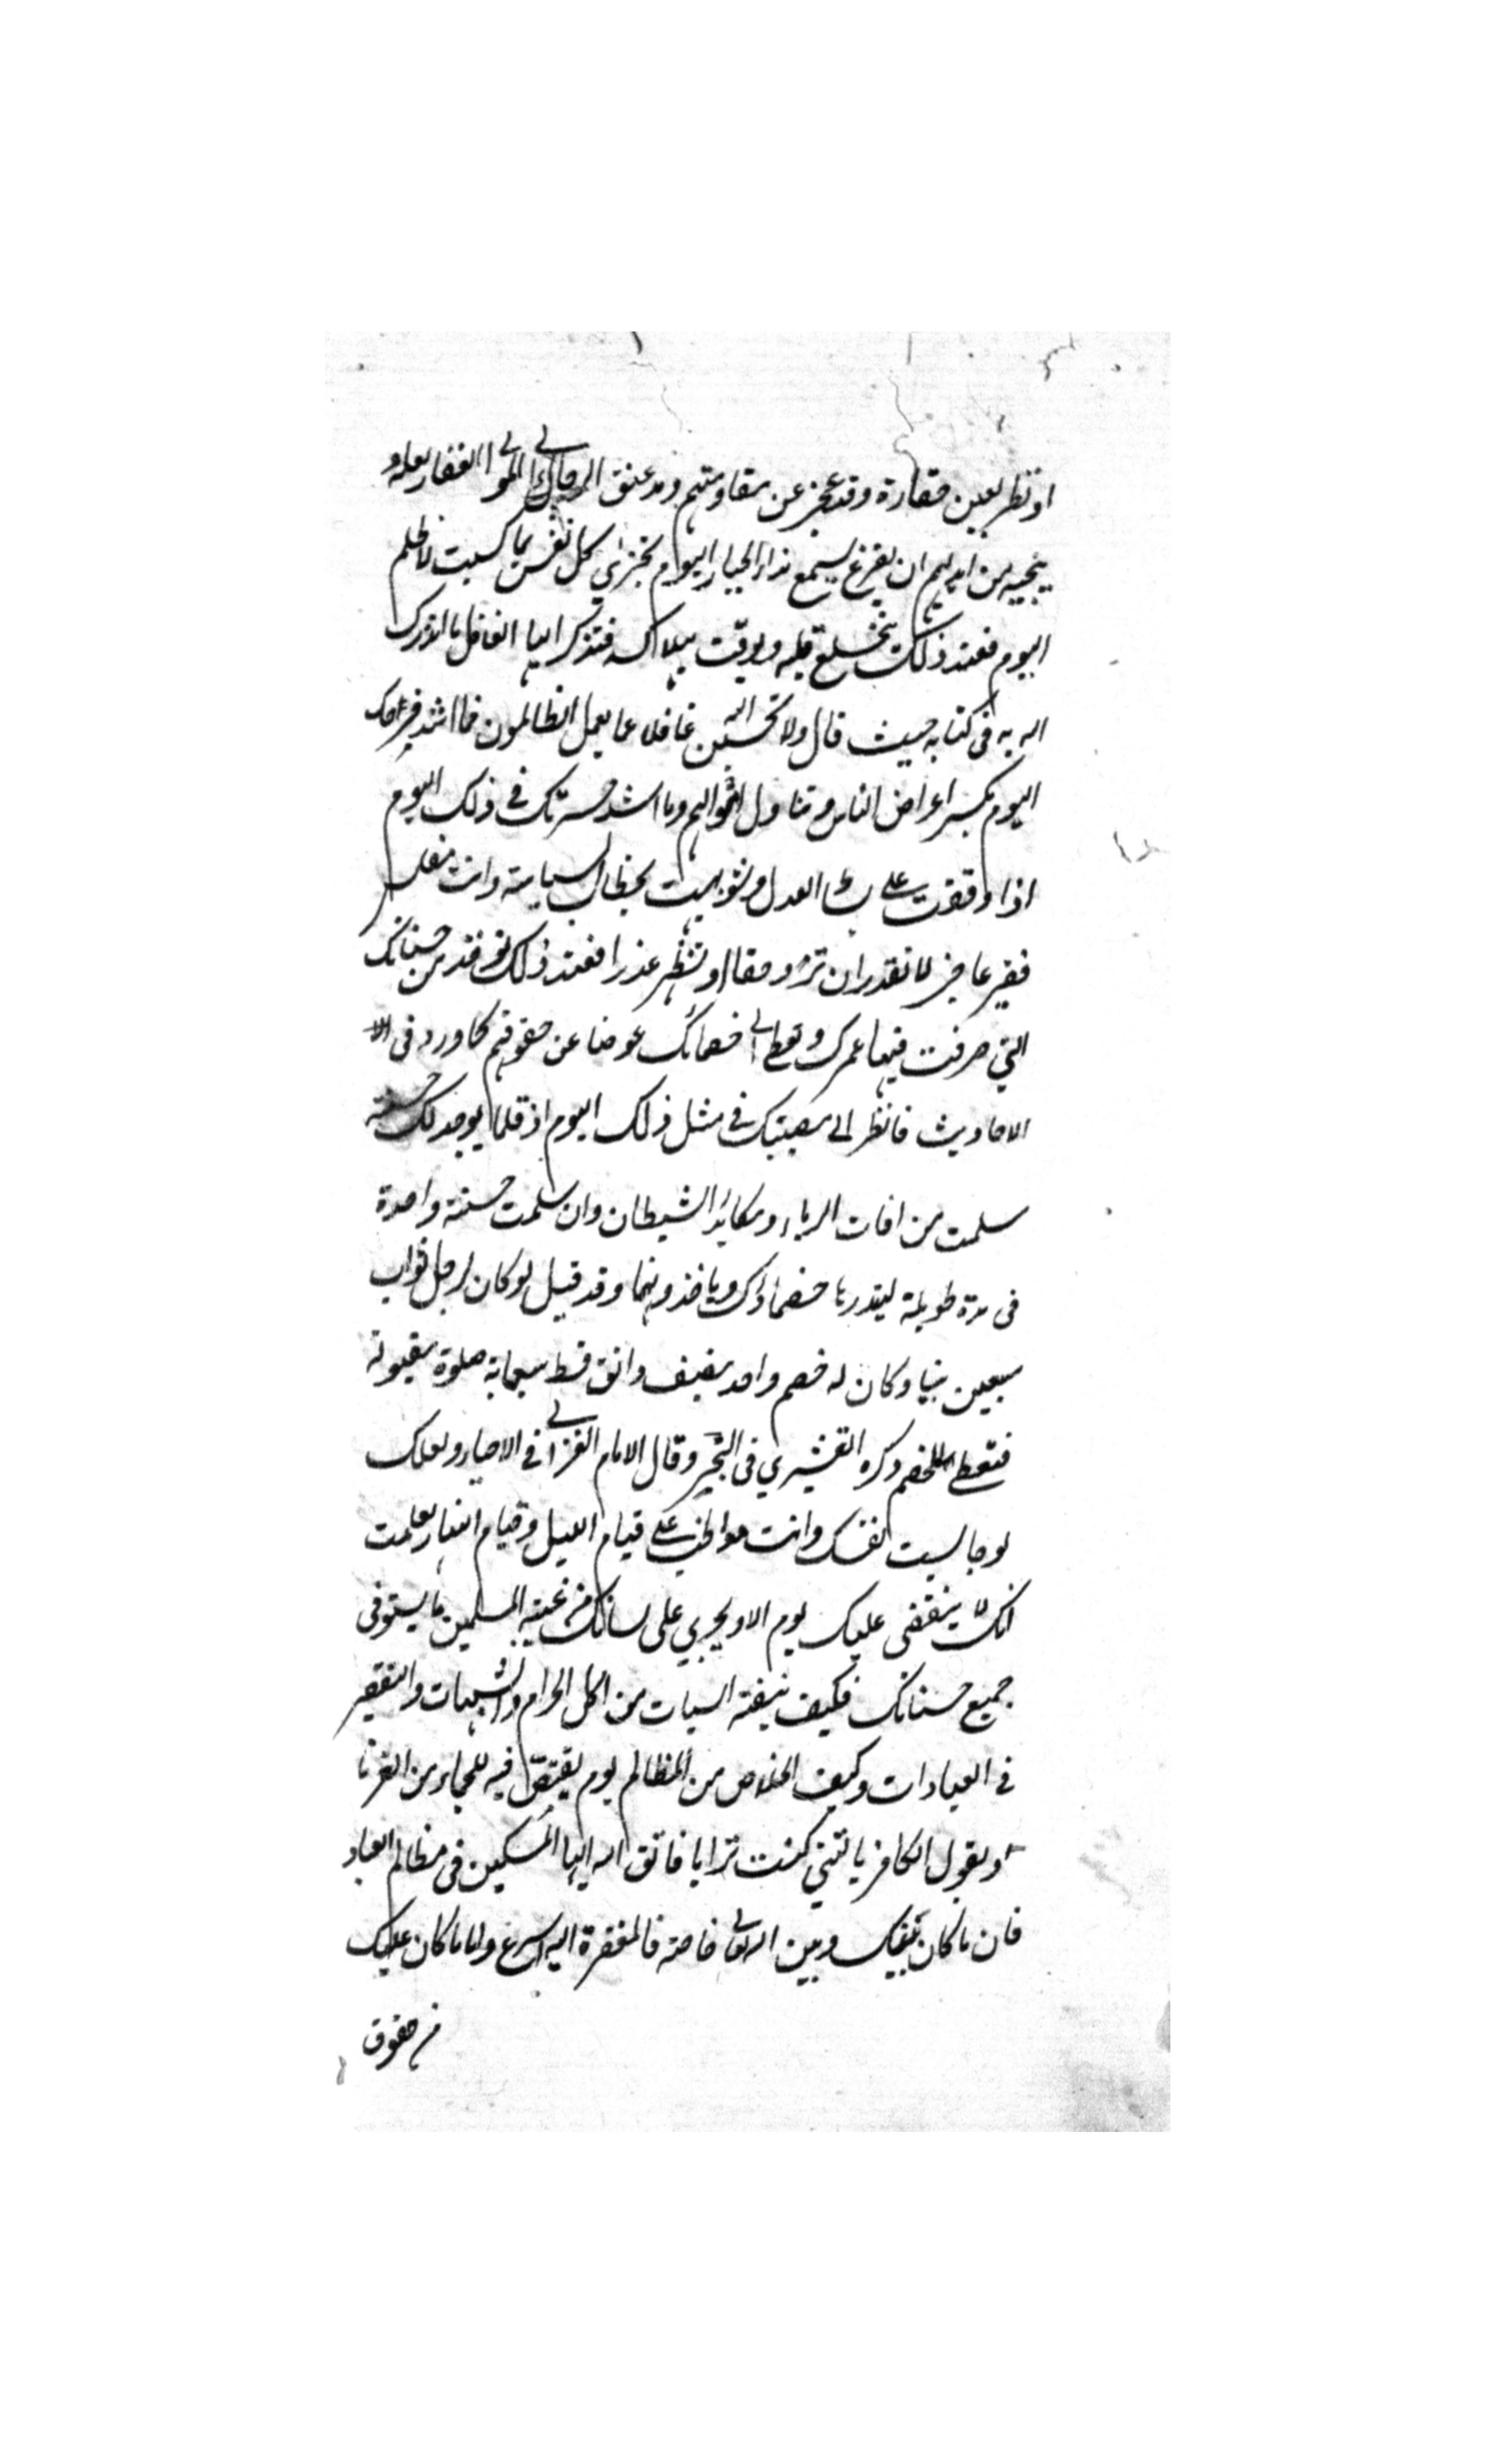 او نظر بعين حقارة وقد عجز عن مقاومتهم ومد عنق الرجاء الى المولى الغفار لعله
ينجيه من ايديهم ان يقرع يسمع نداء الجبار اليوم تجزى كل نفس بما كسبت لا ظلم
اليوم فعند ذلك ينخلع قلبه ويوقن بهلاكه فتذكر ايها الغافل ما انذرك
الله به في كتابه حيث قال ولا تحسبن الله غافلا عما يعمل الظالمون فما اشد فرحك
اليوم بكسر اعراض الناس وتناول اموالهم وما اشد حسرتك في ذلك اليوم
اذا وقفت على بساط العدل وشوفهت بخطاب السياسة وانت مفلس
فقير عاجز لا تقدر ان ترد حقا او تظهر عذرا فعند ذلك تؤخذ من حسناتك
التي صرفت فيها عمرك وتعطى الى خصمائك عوضا عن حقوقهم كما ورد في
الاحاديث فانظر الى مصيبتك في مثل ذلك اليوم اذ قلما يوجد لك حسنة
سلمت من افات الرياء ومكايد الشيطان وان سلمت حسنة واحدة
في مدة طويلة ابتدرها خصماؤك وياخذونها وقد قيل لو كان لرجل ثواب
سبعين نبيا وكان له خصم واحد بنصف دانق قسط سبعمائة صلوة مقبولة
فتعطى للخصم ذكره القشيري في التحبير وقال الامام الغزالي في الاحياء ولعلك
لو حاسبت نفسك وانت مواظب على قيام الليل وصيام النهار لعلمت
انك لا ينقضي عليك يوم الا ويجري على لسانك من غيبة المسلمين ما يستوفى
جميع حسناتك فكيف ببقية السيات من اكل الحرام والشبهات والتقصير
في العبادات وكيف الخلاص من المظالم يوم يقتص فيه للجماء من القرنا
ويقول الكافر يا ليتني كنت ترابا فاتق الله ايها المسكين في مظالم العباد
فان ما كان بينك وبين الله تعالى خاصة فالمغفرة اليه اسرع واما ما كان عليك
من حقوق